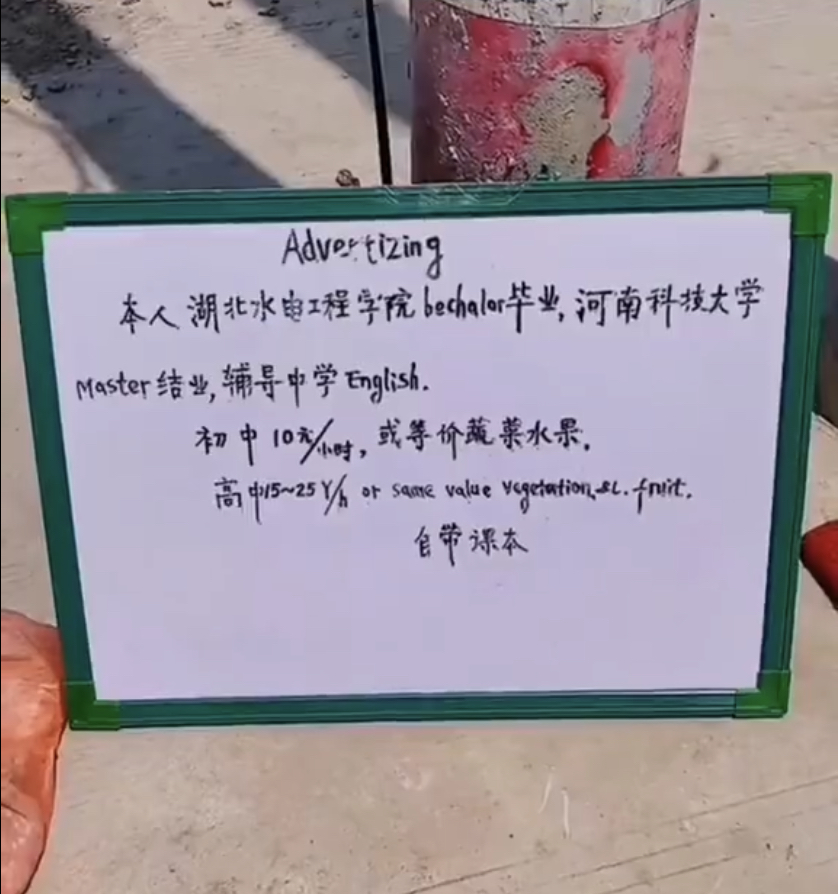 Advertizing
本人湖北水电工程学院bechalor毕业,河南科技大学
Master结业,辅导中学English.
初中10元/小时,或等价蔬菜水果.
高中15~25Y/h or same value vegetation, fruit.
自带课本